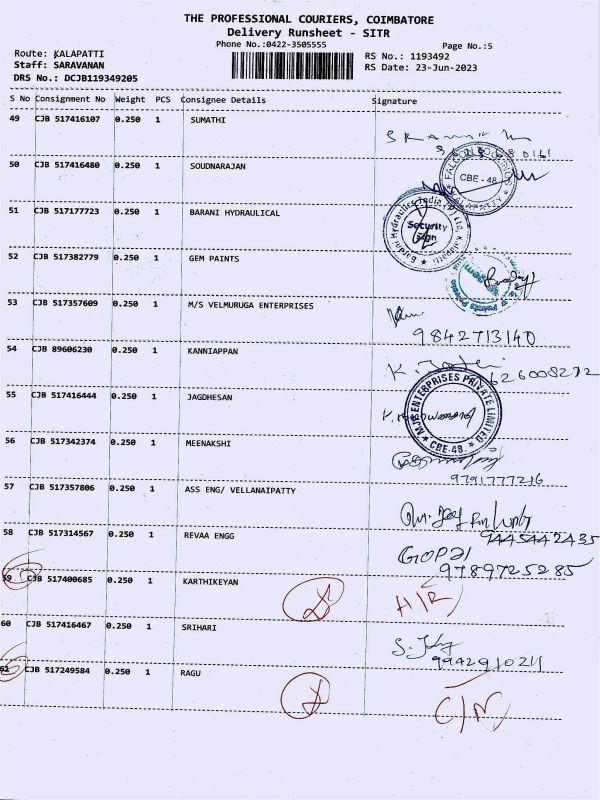 THE PROFESSIONAL COURIERS, COIMBATORE
Delivery Runsheet - SITR
Phone No.:0422-3505555
Page No.:5
Route: KALAPATTI
Staff: SARAVANAN
DRS No.: DCJB119349205
RS No.: 1193492
RS Date: 23-Jun-2023
S No Consignment No Weight PCS Consignee Details Signature
49 CJB 517416107 0.250 1 SUMATHI
50 CJB 517416480 0.250 1 SOUDNARAJAN
CBE - 48
51 CJB 517177723 0.250 1 BARANI HYDRAULICAL
Security
Sign
52 CJB 517382779 0.250 1 GEM PAINTS
53 CJB 517357609 0.250 1 M/S VELMURUGA ENTERPRISES
9842713140
54 CJB 89606230 0.250 1 KANNIAPPAN
626008272
55 CJB 517416444 0.250 1 JAGDHESAN
ENTERPRISES PRIVATE LIMITED
CBE-48
56 CJB 517342374 0.250 1 MEENAKSHI
9791777216
57 CJB 517357806 0.250 1 ASS ENG/ VELLANAIPATTY
9445442435
58 CJB 517314567 0.250 1 REVAA ENGG
GOPAl
9789725285
59 CJB 517400685 0.250 1 KARTHIKEYAN
60 CJB 517416467 0.250 1 SRIHARI
9942910211
61 CJB 517249584 0.250 1 RAGU
C/N